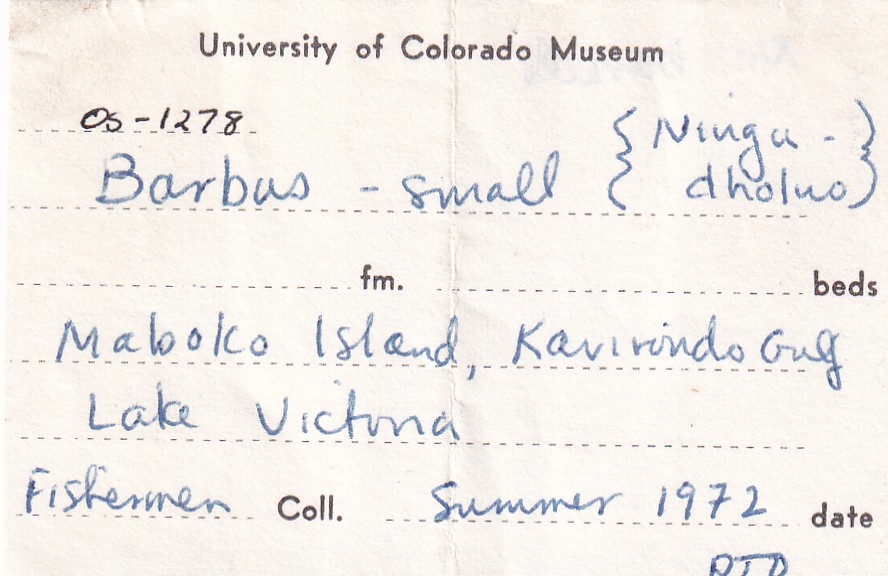 University of Colorado Museum
OS-1278
Barbus - small { Ningu - dholuo }
fm. beds
Maboko Island, Kavirondo Gulf
Lake Victoria
Fishermen Coll. Summer 1972 date